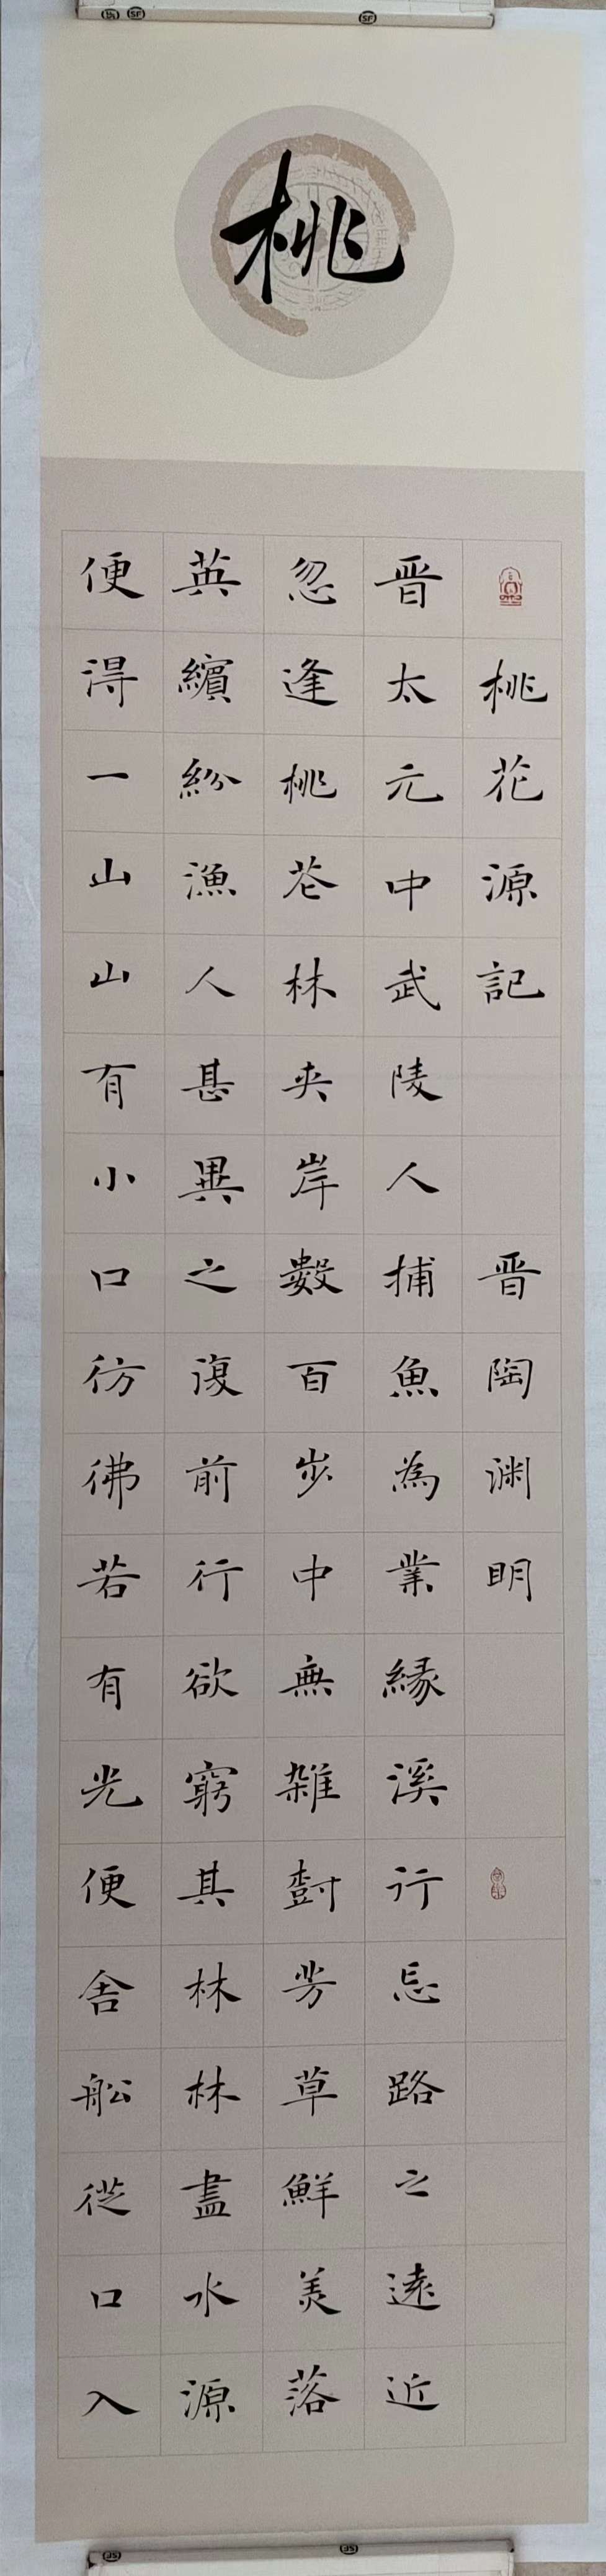 桃
桃花源記 晋陶渊明
晋太元中武陵人捕魚為業緣溪行忘路之遠近
忽逢桃花林夾岸數百步中無雜樹芳草鮮美落
英繽紛漁人甚異之復前行欲窮其林林盡水源
便得一山山有小口彷彿若有光便舍船從口入
SF
SF
SF
SF